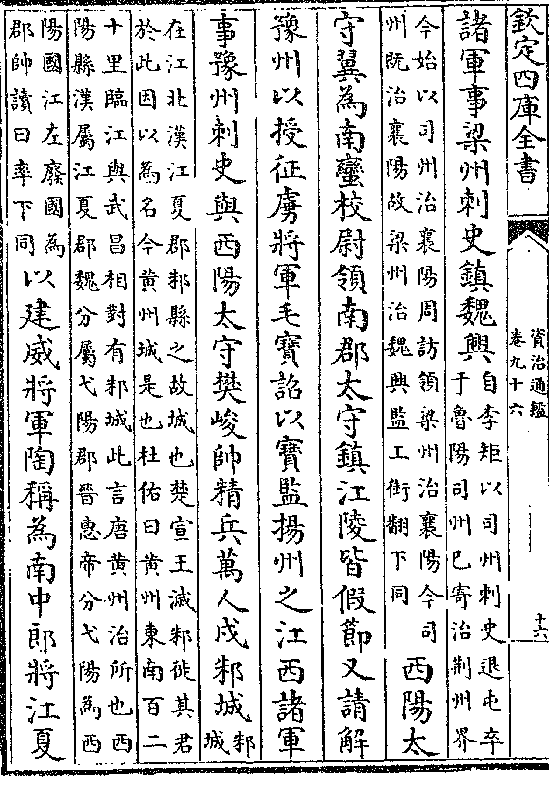 欽定四庫全書
資治通鑑
卷九十六
十六
諸軍事梁州刺史鎮魏興
自李矩以司州刺史退屯卒
于魯陽司州已寄治荆州界
今始以司州治襄陽周訪領梁州治襄陽今司
州既治襄陽故梁州治魏興監工銜翻下同
西陽太
守翼為南蠻校尉領南郡太守鎮江陵皆假節又請解
豫州以授征虜將軍毛寶詔以寶監揚州之江西諸軍
事豫州刺史與西陽太守樊峻帥精兵萬人戍邾城
邾
城
在江北漢江夏郡邾縣之故城也楚宣王滅邾徙其君
於此因以為名今黄州城是也杜佑曰黄州東南百二
十里臨江與武昌相對有邾城此言唐黄州治所也西
陽縣漢屬江夏郡魏分屬弋陽郡晉惠帝分弋陽為西
陽國江左廢國為
郡帥讀曰率下同
以建威將軍陶稱為南中郎將江夏